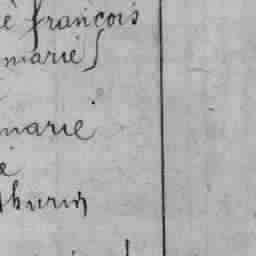 é françois
marie
marie
e
thurin